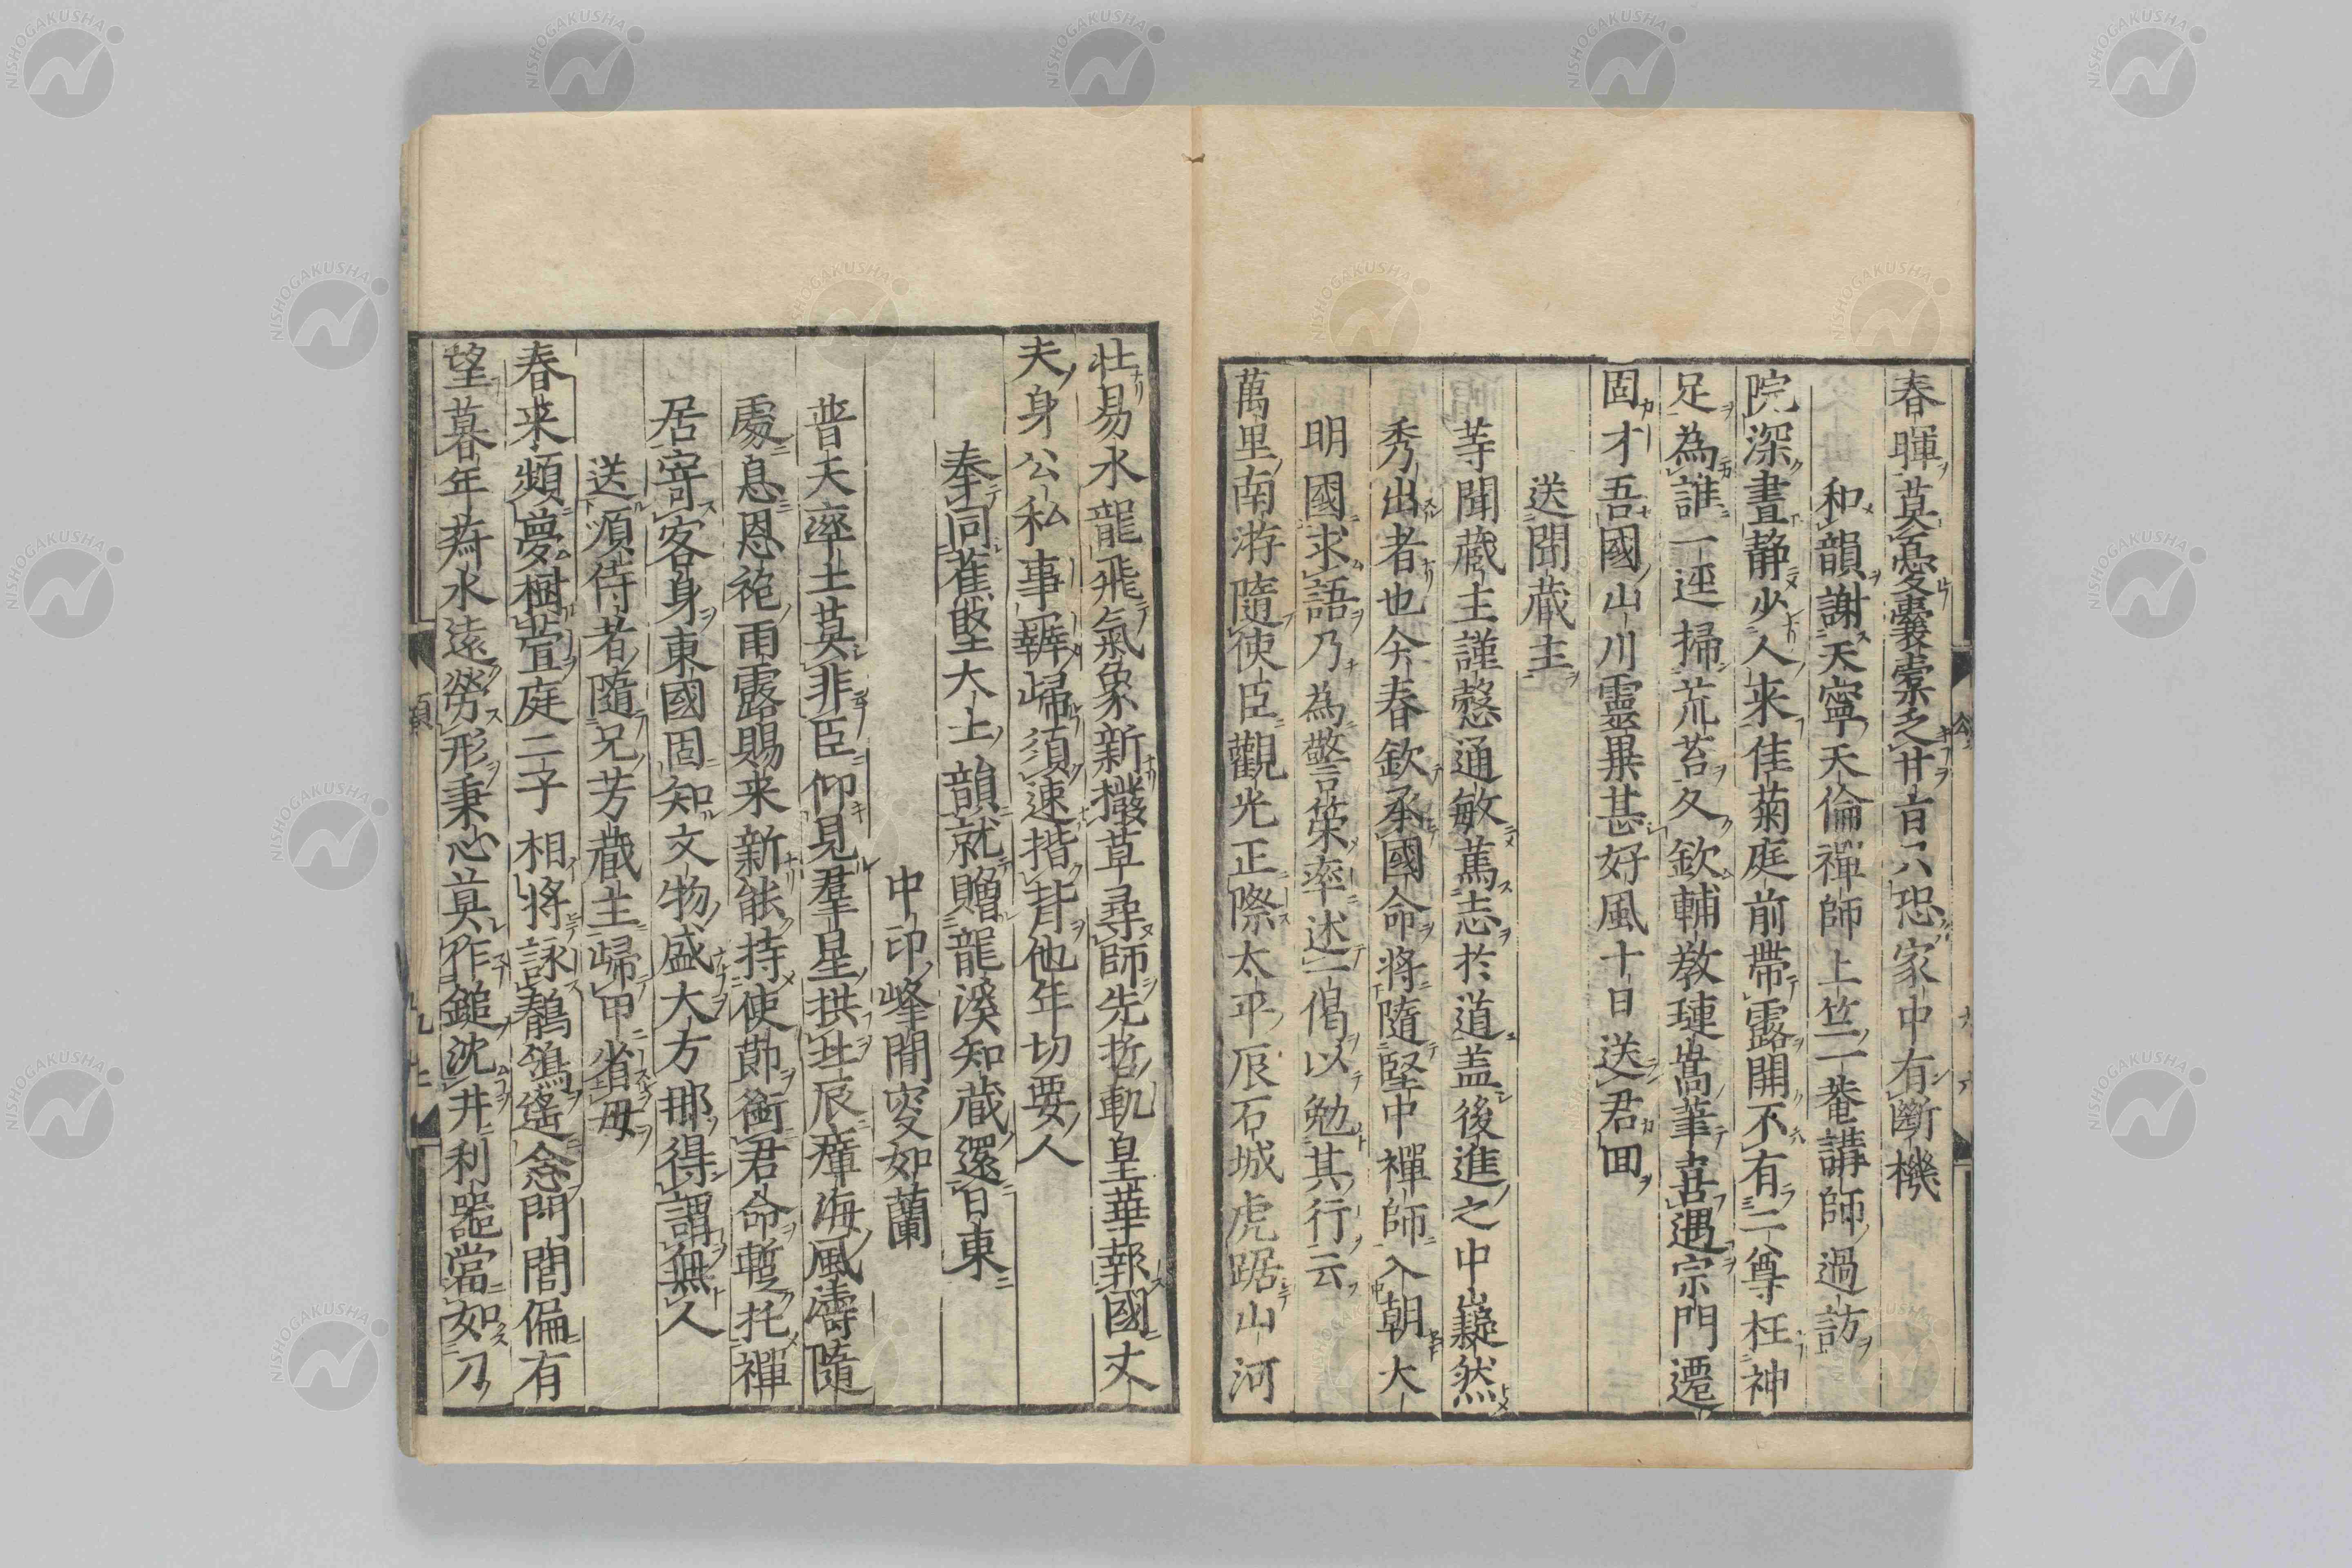 春暉莫憂囊橐乏甘旨只恐家中有斷機
和韻謝天寧天倫禪師上竺一菴講師過訪
院深晝靜少人来佳菊庭前帶露開不有二尊枉神
足為誰一逕掃荒苔久欽輔教璉嵩輩喜遇宗門遷
固才吾國山川靈異甚好風十日送君回
送聞藏主
等聞藏主謹愨通敏篤志於道盖後進之中嶷然
秀出者也今春欽承國命將隨堅中禪師入朝大
明國求語乃為警策率述一偈以勉其行云
萬里南游隨使臣觀光正際太平辰石城虎踞山河
壮易水龍飛氣象新撥草尋師先哲軌皇華報國丈
夫身公私事辦歸須速揩背他年切要人
奉同蕉堅大士韻就贈龍溪知藏還日東
中印峰間叟如蘭
普天率土莫非臣仰見羣星拱北辰瘴海風濤隨
處息恩袍雨露賜来新能持使節銜君命暫托禪
居寄客身東國固知文物盛大方那得謂無人
送順侍者隨兄芳藏主歸甲省母
春来頻夢樹萱庭二子相將詠鶺鴒遙念門閭偏有
望暮年莽水遠勞形秉心莫作鎚沈井利器當如刀